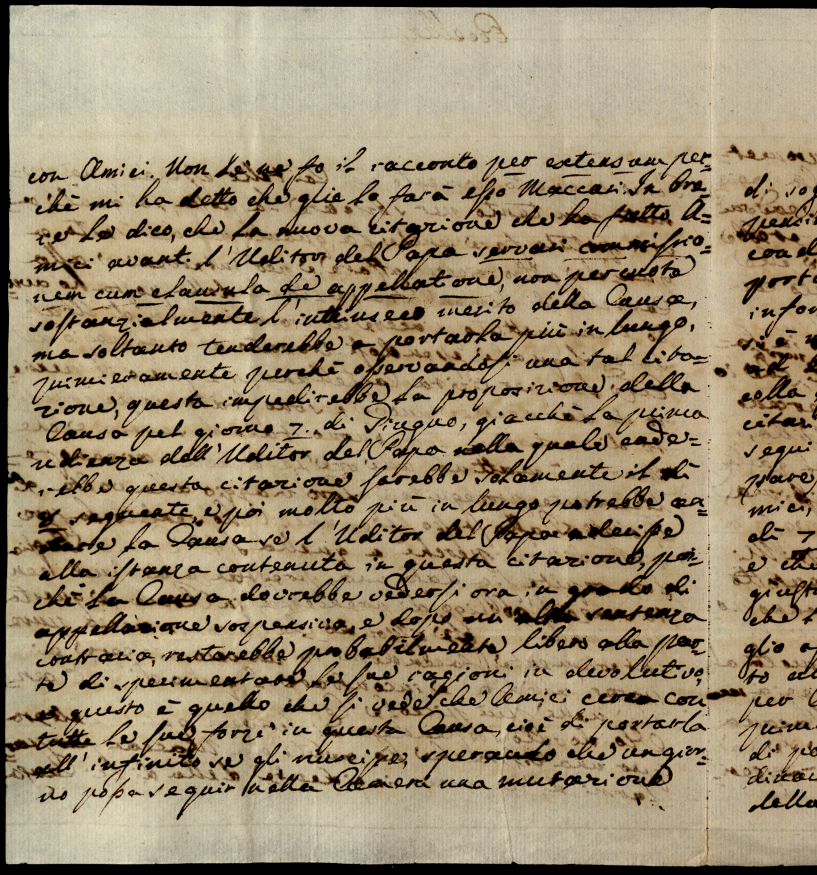 con Amici. Non Le ne fo il racconto per extensum per=
chè mi ha detto che glie lo farà esso Maccari. In bre=
ve Le dico, che la nuova citazione che ha fatto A=
mici avanti l'Uditor del Papa servari commissio=
nem cum clausula de appellatione, non percuote
sostanzialmente l'intrinseco merito della Causa,
ma soltanto tenderebbe a portarla più in lungo,
primieramente perchè osservandosi una tal cita=
zione, questa impedirebbe la proposizione della
Causa pel giorno 7. di Giugno, giacchè la prima
udienza dell'Uditor del Papa nella quale cade=
rebbe questa citazione sarebbe solamente il dì
8 seguente, e poi molto più in lungo potrebbe
la Causa se l'Uditor del Papa aderisse
alla istanza contenuta in questa citazione, per=
chè la Causa dovrebbe vedersi ora in grado di
appellazione sospensiva, e dopo un'altra sentenza
contraria, resterebbe probabilmente libero alla par=
te di sperimentare le sue ragioni in devolutivo,
e questo è quello che si vede che Amici cerca con
tutte le sue forze in questa Causa, cioè di portarla
all'infinito se gli riuscisse, sperando che un gior=
no possa seguir nella Camera una mutazione
di sog
condi
porta
infor
si è
della
citaz
segui
pare
mici,
di 7
e che
giust
che l
glio a
to
per
prim
di po
della